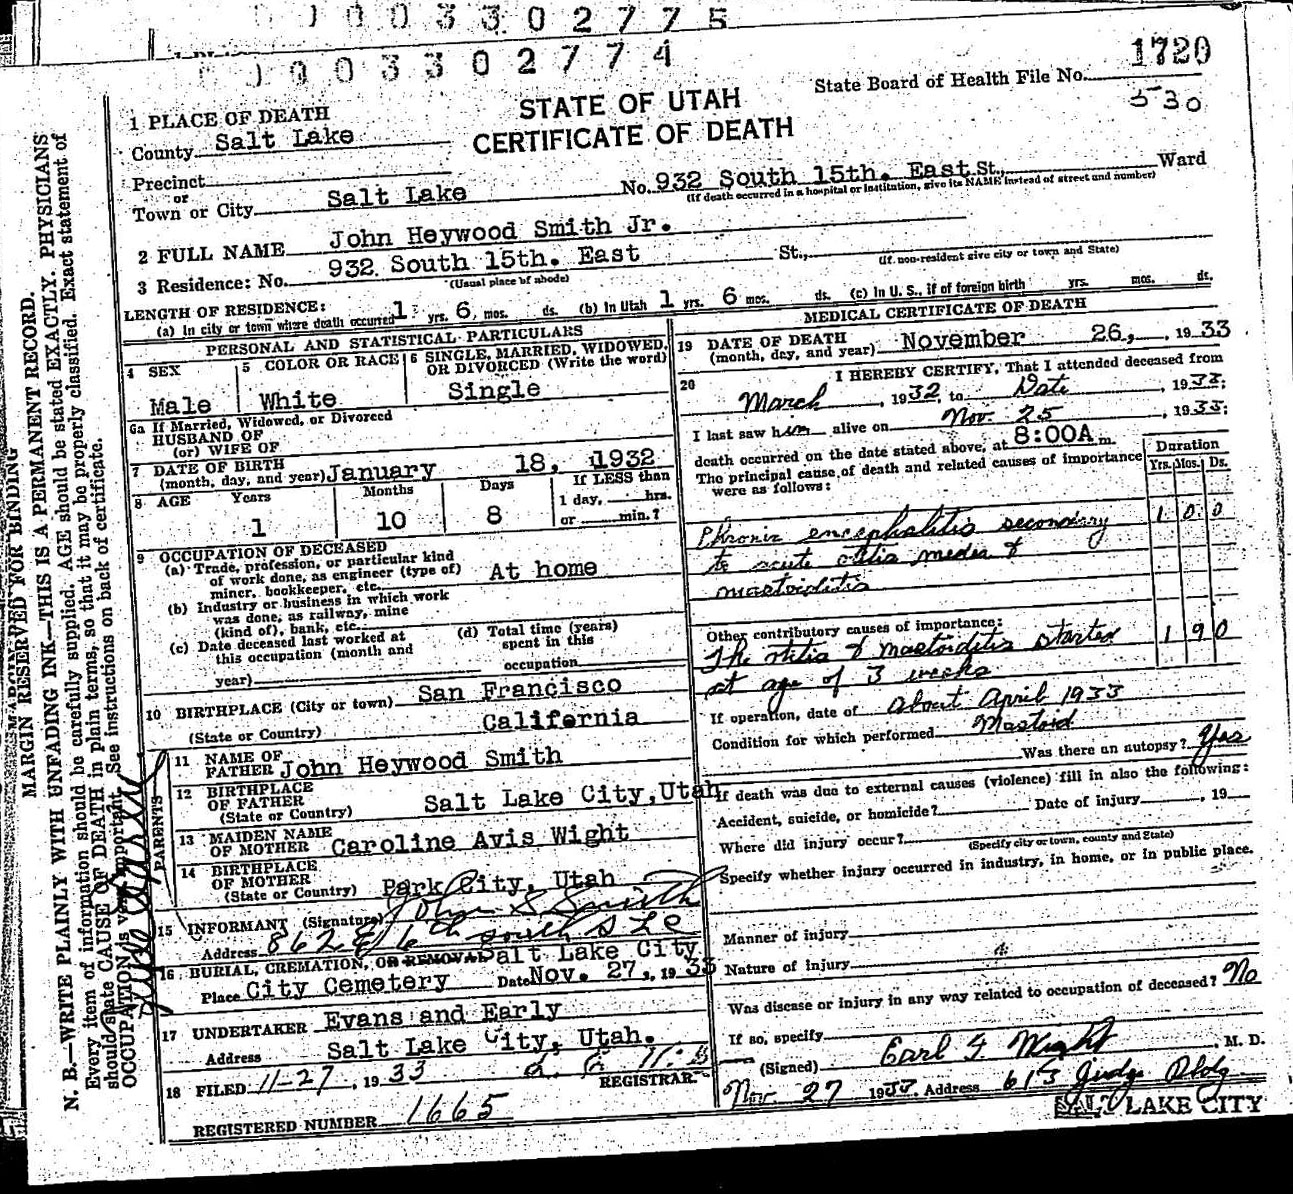 0 0 0 3 3 0 2 7 7 5
0 0 0 3 3 0 2 7 7 4
1720
State Board of Health File No.
530
STATE OF UTAH
CERTIFICATE OF DEATH
1 PLACE OF DEATH
County Salt Lake
Precinct
or
Town or City Salt Lake No. 932 South 15th. East St., Ward
(If death occurred in a hospital or institution, give its NAME instead of street and number)
2 FULL NAME John Heywood Smith Jr.
3 Residence: No. 932 South 15th. East St.,
(Usual place of abode) (If non-resident give city or town and State)
LENGTH OF RESIDENCE:
(a) In city or town where death occurred 1 yrs. 6 mos. ds. (b) In Utah 1 yrs. 6 mos. ds. (c) In U. S., if of foreign birth yrs. mos. ds.
PERSONAL AND STATISTICAL PARTICULARS
4 SEX Male
5 COLOR OR RACE White
6 SINGLE, MARRIED, WIDOWED, OR DIVORCED (Write the word) Single
6a If Married, Widowed, or Divorced
HUSBAND OF
(or) WIFE OF
7 DATE OF BIRTH
(month, day, and year) January 18, 1932
8 AGE Years Months Days If LESS than
1 10 8 1 day, hrs.
or min.?
9 OCCUPATION OF DECEASED
(a) Trade, profession, or particular kind
of work done, as engineer (type of)
miner, bookkeeper, etc. At home
(b) Industry or business in which work
was done, as railway, mine
(kind of), bank, etc.
(c) Date deceased last worked at
this occupation (month and
year)
(d) Total time (years)
spent in this
occupation
10 BIRTHPLACE (City or town) San Francisco
(State or Country) California
PARENTS
11 NAME OF
FATHER John Heywood Smith
12 BIRTHPLACE
OF FATHER
(State or Country) Salt Lake City, Utah
13 MAIDEN NAME
OF MOTHER Caroline Avis Wight
14 BIRTHPLACE
OF MOTHER
(State or Country) Park City, Utah
15 INFORMANT (Signature) John S Smith
Address 862 E 6th South S L C
16 BURIAL, CREMATION, OR REMOVAL Salt Lake City
Place City Cemetery Date Nov. 27, 1933
17 UNDERTAKER Evans and Early
Address Salt Lake City, Utah.
18 FILED 11-27, 1933
REGISTRAR
REGISTERED NUMBER 1665
MEDICAL CERTIFICATE OF DEATH
19 DATE OF DEATH
(month, day, and year) November 26, 1933
20 I HEREBY CERTIFY, That I attended deceased from
March, 1932 to Date, 1933;
I last saw him alive on Nov. 25, 1933;
death occurred on the date stated above, at 8:00A m.
The principal cause of death and related causes of importance
were as follows:
Duration
Yrs. Mos. Ds.
Chronic encephalitis secondary 1 0 0
to acute otitis media &
mastoiditis
Other contributory causes of importance:
The otitis & mastoiditis started 1 9 0
at age of 3 weeks
If operation, date of About April 1933
Condition for which performed Mastoid
Was there an autopsy? Yes
If death was due to external causes (violence) fill in also the following:
Accident, suicide, or homicide? Date of injury , 19
Where did injury occur?
(Specify city or town, county and State)
Specify whether injury occurred in industry, in home, or in public place.
Manner of injury
Nature of injury
Was disease or injury in any way related to occupation of deceased? No
If so, specify
(Signed) Earl F. Wight, M. D.
Nov. 27 1933 Address 613 Judge Bldg
SALT LAKE CITY
MARGIN RESERVED FOR BINDING
N. B.—WRITE PLAINLY WITH UNFADING INK—THIS IS A PERMANENT RECORD.
Every item of information should be carefully supplied. AGE should be stated EXACTLY. PHYSICIANS
should state CAUSE OF DEATH in plain terms, so that it may be properly classified. Exact statement of
OCCUPATION is very important. See instructions on back of certificate.